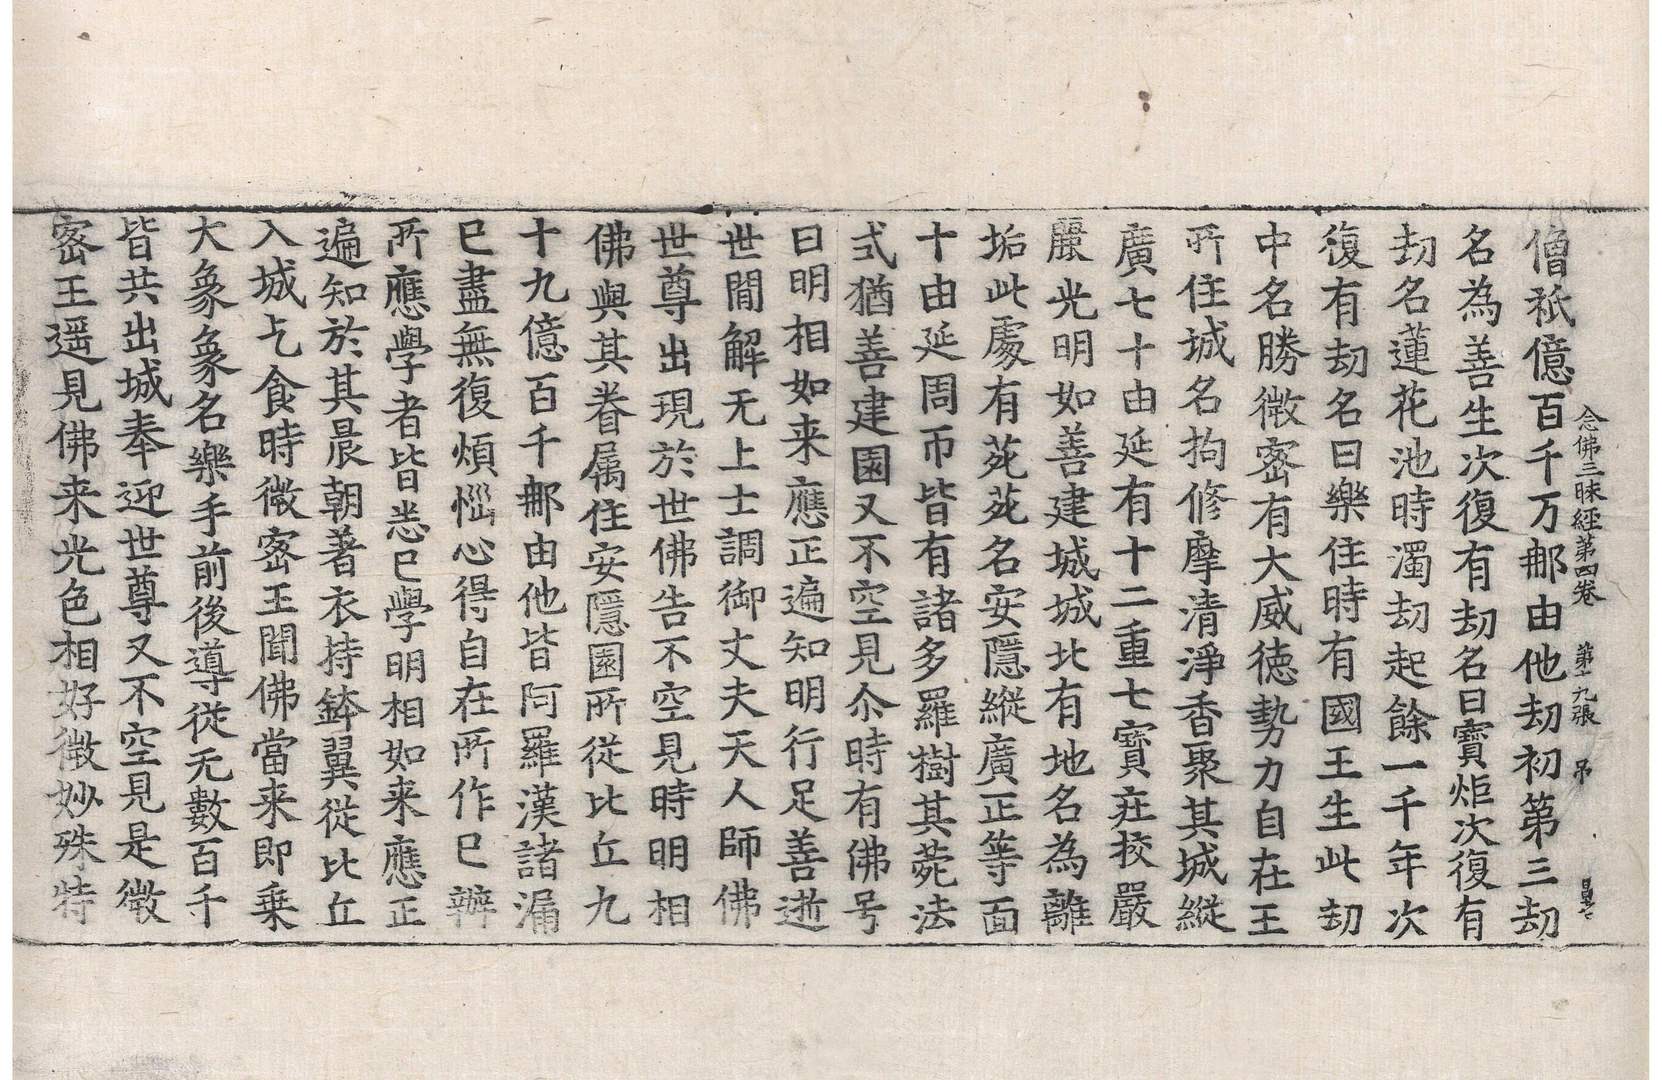 念佛三昧経第四卷 第十九張 吊
僧祇億百千万那由他劫初第三劫
名為善生次復有劫名曰寶炬次復有
劫名蓮花池時濁劫起餘一千年次
復有劫名曰樂住時有國王生此劫
中名勝微密有大威徳勢力自在王
所住城名拘修摩清淨香聚其城縱
廣七十由延有十二重七寶莊挍嚴
麗光明如善建城城北有地名為離
垢此處有苑苑名安隱縱廣正等面
十由延周帀皆有諸多羅樹其菀法
式猶善建園又不空見尒時有佛号
曰明相如来應正遍知明行足善逝
世間解无上士調御丈夫天人師佛
世尊出現於世佛告不空見時明相
佛與其眷属住安隱園所從比丘九
十九億百千那由他皆阿羅漢諸漏
已盡無復煩惱心得自在所作已辦
所應學者皆悉已學明相如来應正
遍知於其晨朝著衣持鉢翼從比丘
入城乞食時微密王聞佛當来即乗
大象象名樂手前後導從无數百千
皆共出城奉迎世尊又不空見是微
密王遥見佛来光色相好微妙殊特